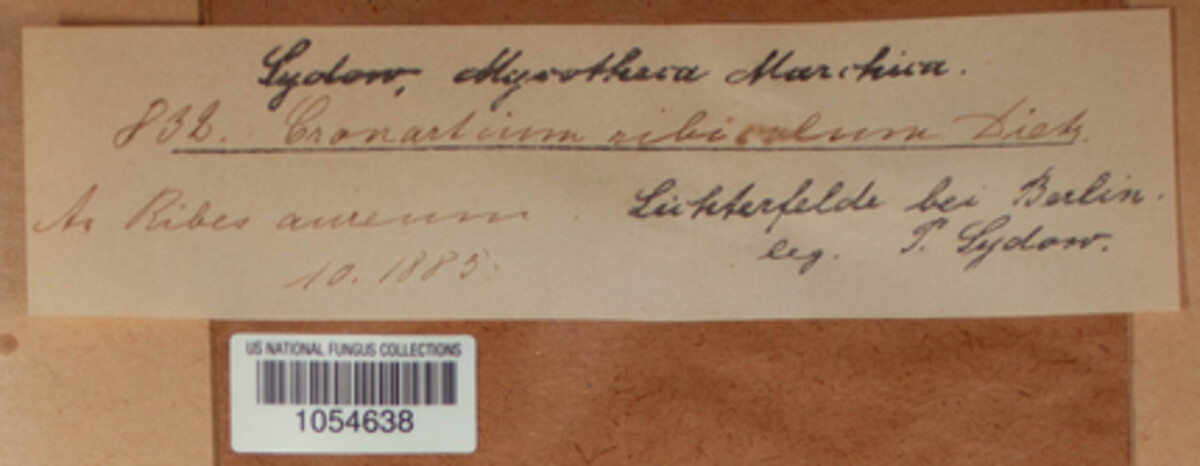 Sydow, Mycotheca Marchica.
832. Cronartium ribicolum Dietr.
An Ribes aureum
10. 1885.
Lichterfelde bei Berlin.
leg. P. Sydow.
US NATIONAL FUNGUS COLLECTIONS
1054638